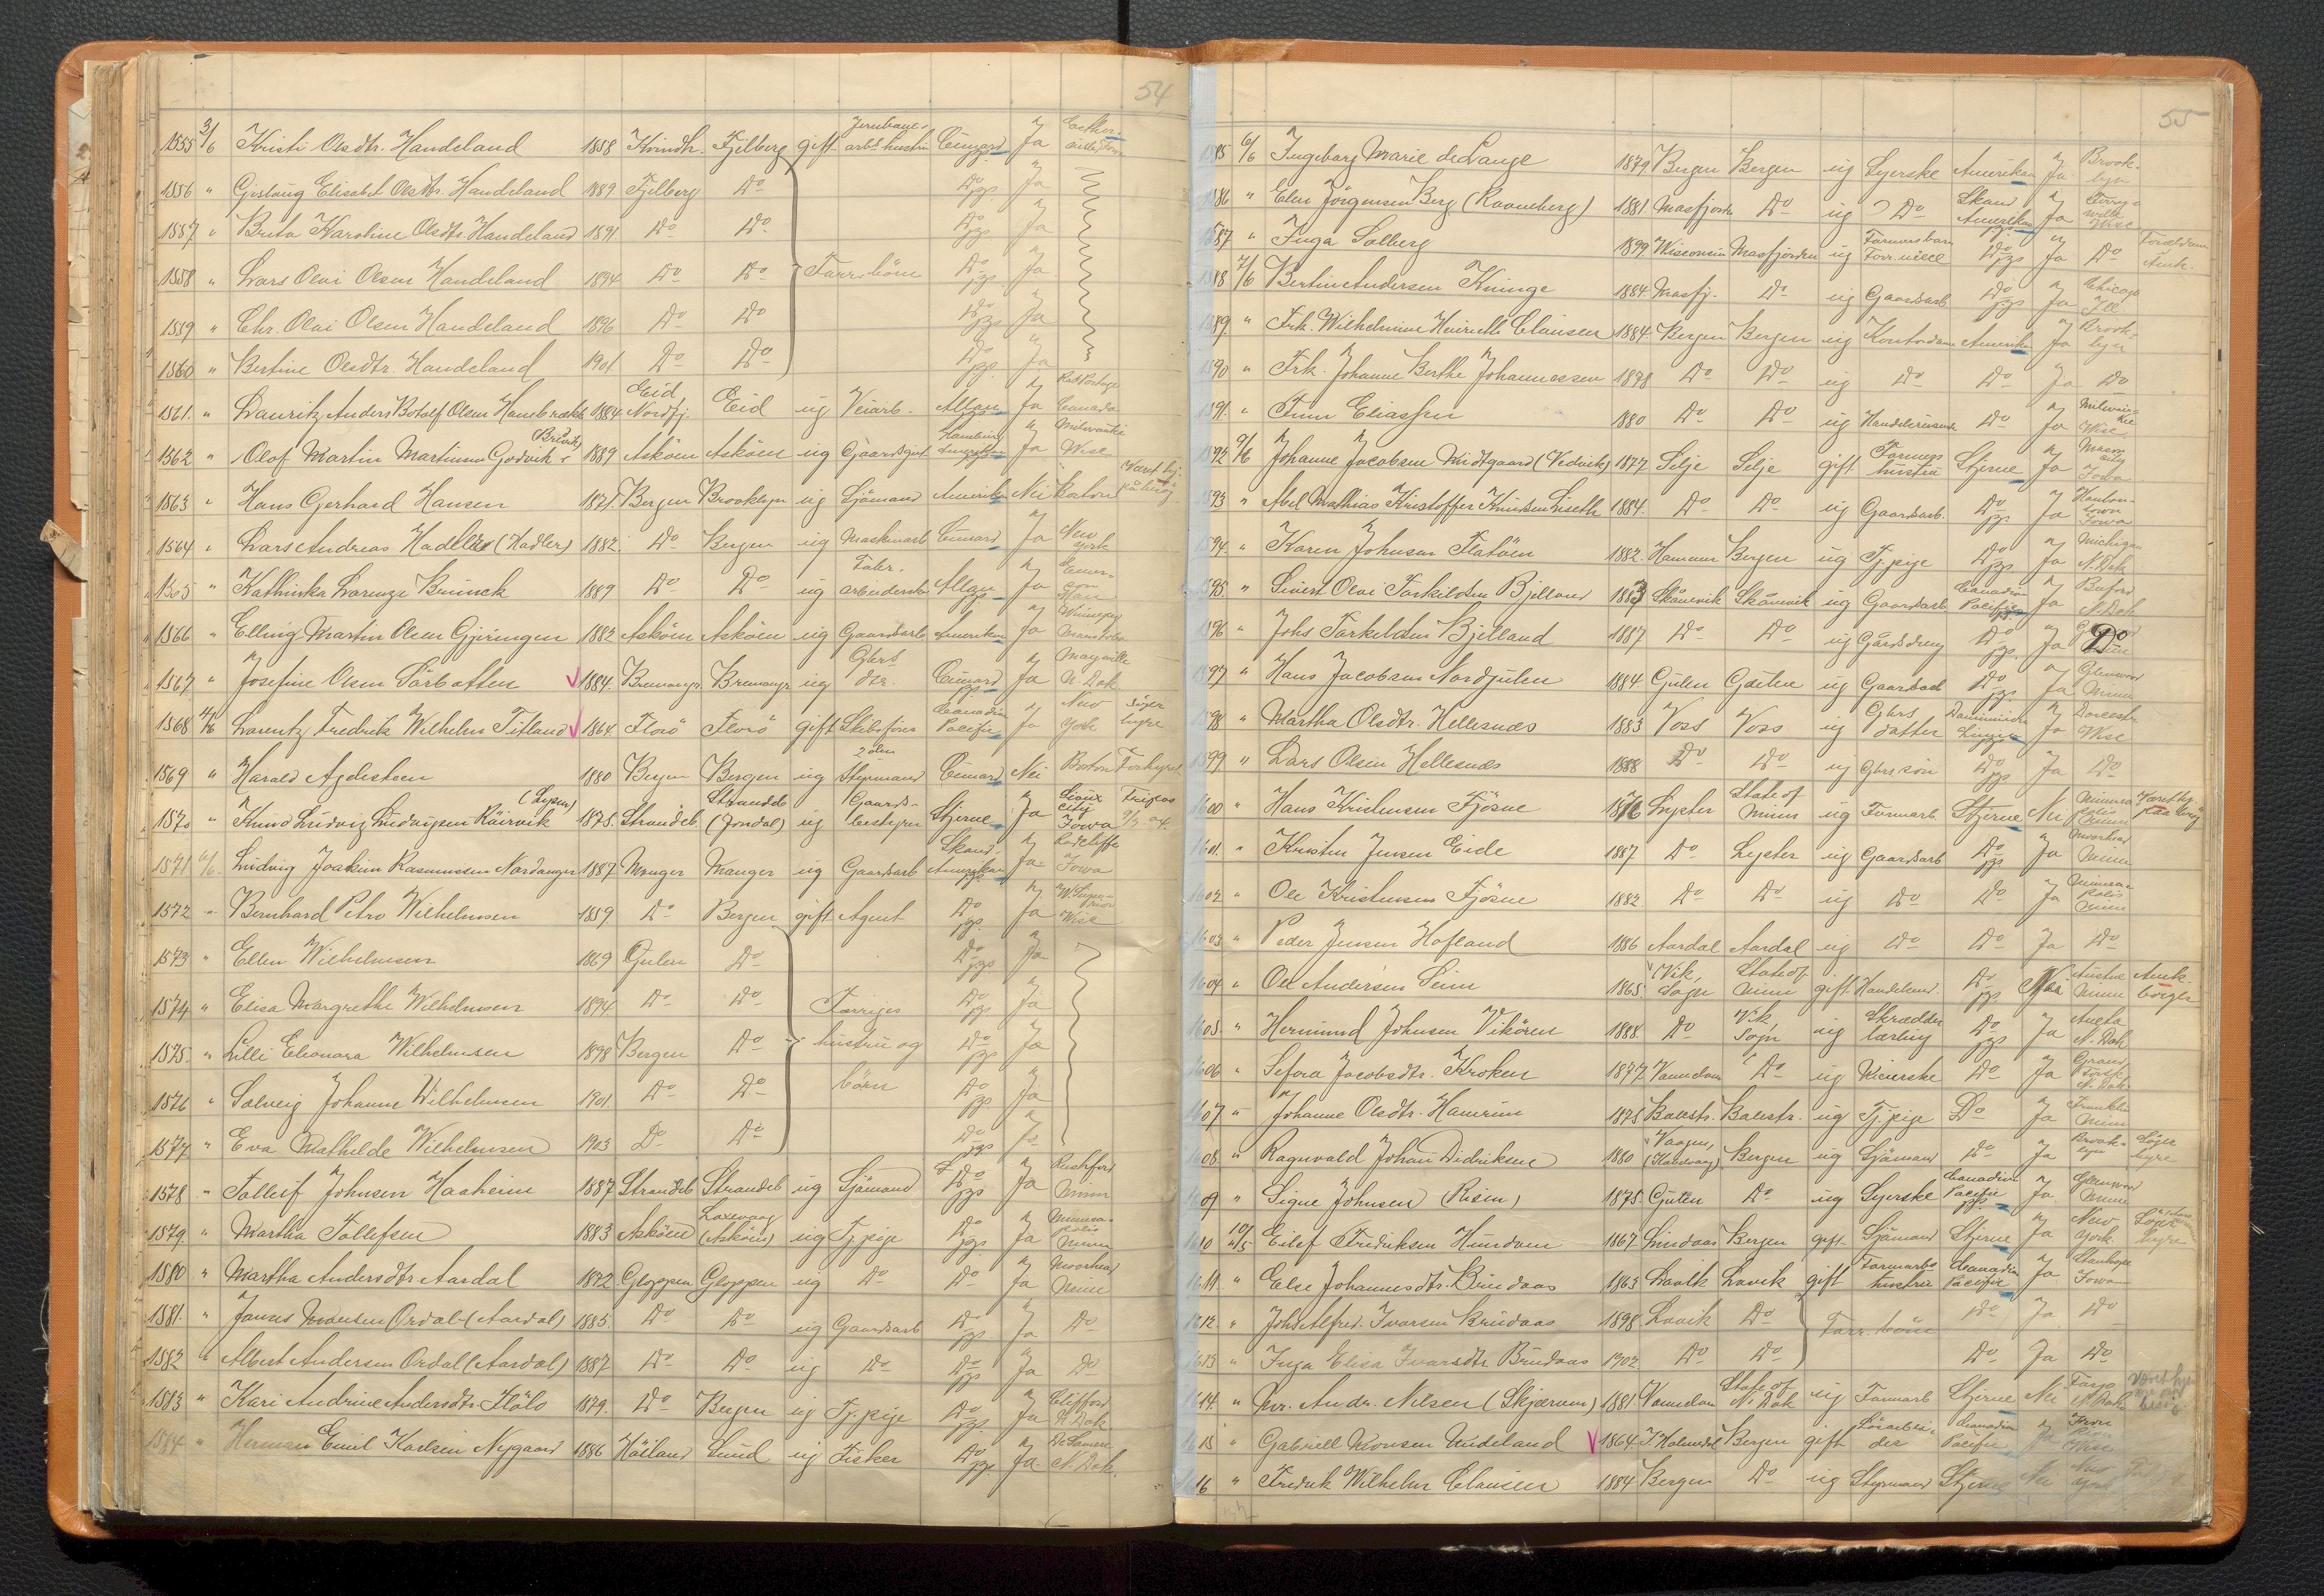 54
1555 3/6 Kristi Olsdtr. Handeland 1858 Kvindh. Fjelberg gift Jernbane- arb. hustru Cunard pps. Ja
1556 " Gjøslaug Elisabet Olsdtr. Handeland 1889 Fjelberg Do Do pps Ja
1557 " Brita Karoline Olsdtr. Handeland 1891 Do Do Do pps Ja
1558 " Lars Olai Olsen Handeland 1894 Do Do Forr. börn Do pps Ja
1559 " Chr. Olai Olsen Handeland 1896 Do Do Do pps Ja
1560 " Bertine Olsdtr. Handeland 1901 Do Do Do pps Ja
1561. " Lauritz Anders Botolf Olsen 1884 Eid Nordfj. Eid ug Veiarb. Allan pps Ja Rat Portage Canada
1562 " Olof Martin Martinsen Godvik (Brevik) 1889 Asköen Asköen ug Gaardsgut Hamburg Amerika Ja Milwaukee Wisc
1563 " Hans Gerhard Hansen 1871. Bergen Brooklyn ug Sjömand Amerikan Nei Boston Været hj. på besög
1564 " Lars Andreas Hadler (Hadler) 1882. Do Bergen ug Maskinarb Cunard Ja New York
1565 " Kathinka Lorenze Brunck 1889 Do Do ug Fabr. arbeiderske Allan pps Ja
1566 " Elling Martin Olsen Gjeringen 1882 Asköen Asköen ug Gaardsarb Amerikan Ja Winnipeg Manitoba
1567 " Josefine Olsen Sörbotten 1884. Bremanger Bremanger ug Gbrs dtr. Cunard pps Ja Mayville N. Dak
1568 4/6 Lorentz Fredrik Wilhelm Titland 1864. Florö Florö gift Skibsförer Canadian Pacific Ja New York Söger hyre
1569 " Harald Agdesteen 1880 Bergen Bergen ug Styrmand Cunard Nei Boston Forhyret
1570 " Knud Ludvig Ludvigsen Röirvik (Lysen) 1875. Strandeb. Strandeb (Jondal) ug Gaards- bestyrer Stjerne Ja Sioux City Iowa Fripas 9/3 04.
1571 6/6. Ludvig Joakim Rasmussen Nordanger 1887 Manger Manger ug Gaardsarb Skand. Amerikan pps Ja Radcliffe Iowa
1572 " Bernhard Petro Wilhelmsen 1859 Do Bergen gift Agent Do pps. Ja W. Superior Wisc
1573 " Ellen Wilhelmsen 1869 Gulen Do Do pps Ja
1574 " Elisa Margrethe Wilhelmsen 1894 Do Do Forriges Do pps Ja
1575. " Lilli Eleonora Wilhelmsen 1898 Bergen Do hustru og Do pps Ja
1576 " Solveig Johanne Wilhelmsen 1901. Do Do börn Do pps Ja
1577 " Eva Mathilde Wilhelmsen 1903 Do Do Do pps Ja
1578 " Tolleif Johnsen Haaheim 1887 Strandeb Strandeb ug Sjömand Do pps Ja Rushford Minn
1579. " Martha Tollefsen 1883 Asköen Laxevaag (Asköen) ug Tj. pige Do pps. Ja Minneapolis Minn
1580 " Martha Andersdtr Aardal 1872 Gloppen Gloppen ug Do Do Ja Moorhead Minn
1581. " James Monsen Ordal (Aardal) 1885. Do Do ug Gaardsarb Do pps Ja Do
1582 " Albert Andersen Ordal (Aardal) 1887 Do Do ug Do Do pps Ja Do
1583 " Kari Andrine Andersdtr. Flölo 1879. Do Bergen ug Tj. pige Do pps. Ja Clifford N. Dak
1584 " Herman Emil Karlsen Nygaard 1886 Sund ug Fisker Do pps. Ja N. Dak.
55
1585 6/6 Ingeborg Marie de Lange 1879 Bergen Bergen ug Syerske Amerikan Ja Brook- lyn
1586 " Elen Jörgensen Berg (Ravneberg) 1881. Masfjorden Do ug Do Skand Amerikan pps Ja Wisc
1587. " Inga Solberg 1899 Wisconsin Masfjorden ug Farmersbarn Forr. niece Do pps Ja Do Amk.
1588 7/6 Bertin Andersen Kninge 1884 Masfj. Do ug Gaardsarb Do pps Ja Chicago Ill
1589. " Frk. Wilhelmine Henriette Clausen 1884 Bergen Bergen ug Kontordame Amerikan Ja Brook- lyn
1590 " Frk. Johanne Berthe Johannessen 1878 Do Do ug Do Do Ja Do
1591. " Finn Eliassen 1880 Do Do ug Handelsreisende Do Ja Milwau- kee Wisc
1592 9/6 Johanne Jacobsen Midtgaard (Vedvik) 1877 Selje Selje gift Farmers hustru Stjerne Ja Mason city Iowa
1593 " Abel Mathias Kristoffer Knudsen Liseth 1884. Do Do ug Gaardsarb. Do pps Ja Iowa
1594. " Karen Johnsen Flatöen 1882. Hammer Bergen ug Tj. pige Do pps Ja Michigan N. Dak
1595. " Sivert Olai Torkildsen Bjelland 1883 Skånevik Skånevik ug Gaardsarb Canadian Pacific pps Ja Buford N. Dak
1596 " Johs Torkildsen Bjelland 1887 Do Do ug Gårdsdreng Do pps. Ja Do
1597 " Hans Jacobsen Nordgulen 1884. Gulen Gulen ug Gaardsarb Do pps Ja Glenwood Minn
1598 " Martha Olsdtr. Hellesnæs 1883 Voss Voss ug Gbrs datter Dominion Linjen Ja Wisc
1599. " Lars Olsen Hellesnæs 1888 Do Do ug Gbrs sön Do pps Ja Do
1600 " Hans Kristensen Fjösne 1876 Lyster State of Minn ug Farmarb. Stjerne Nei Minneapolis Minn Været hj. paa besög
1601. " Kristen Jensen Eide 1887 Do Lyster ug Gaardsarb Do pps Ja Moorhead Minn
1602. " Ole Kristensen Fjösne 1882. Do Do ug Do Do Ja Minnea- polis Minn
1603 " Peder Jensen Hofland 1886 Aardal Aardal ug Do Do Ja Do
1604 " Ole Andersen Seim 1865. Vik, Sogn State of Minn gift Handelsmd. Do pps Nei Austin Minn Amk. borger
1605. " Hermund Johnsen Vikören 1888. Do Vik, Sogn ug Skrædder lærling Do pps Ja Aneta N. Dak
1606 " Sefora Jacobsdtr. Kroken 1877. Do ug Meierske Do Ja Grand Forks N. Dak.
1607 " Johanne Olsdtr. Hamrum 1875 Balestr. Balestr. ug Tj. pige Do Ja Franklin Minn
1608. " Ragnvald Johan Didriksen 1880 Vaagen, Bergen ug Sjömand Do Ja Brook- lyn Söger hyre
1609 " Signe Johnsen (Risen) 1875. Gulen Do ug Syerske Canadian Pacific pps. Ja Glenwood Minn
1610 10/6 Eilef Fredriksen Hundven 1867. Lindaas Bergen gift Sjömand Stjerne Ja New York Söger hyre
1611. " Else Johannesdtr. Brudaas 1863 Lavik Lavik gift Farmarbs hustru Canadian Pacific Ja Stanhope Iowa
1612. " Johs Alfred Ivarsen Brudaas 1898. Lavik Do Forr. börn Do Ja Do
1613 " Inga Elisa Ivarsdtr. Brudaas 1902. Do Do Do Ja Do
1614. " Mr. Andr. Nilsen (Skjærum) 1881. State of N. Dak ug Farmarb Stjerne Nei Fargo N. Dak Været hj. besög
1615 " Gabriell Monsen Undeland 1864 Bergen gift Canadian Pacific Ja Iron River Wisc
1616 " Fredrik Wilhelm Clausen 1884 Bergen Do ug Styrmand Stjerne Nei New York